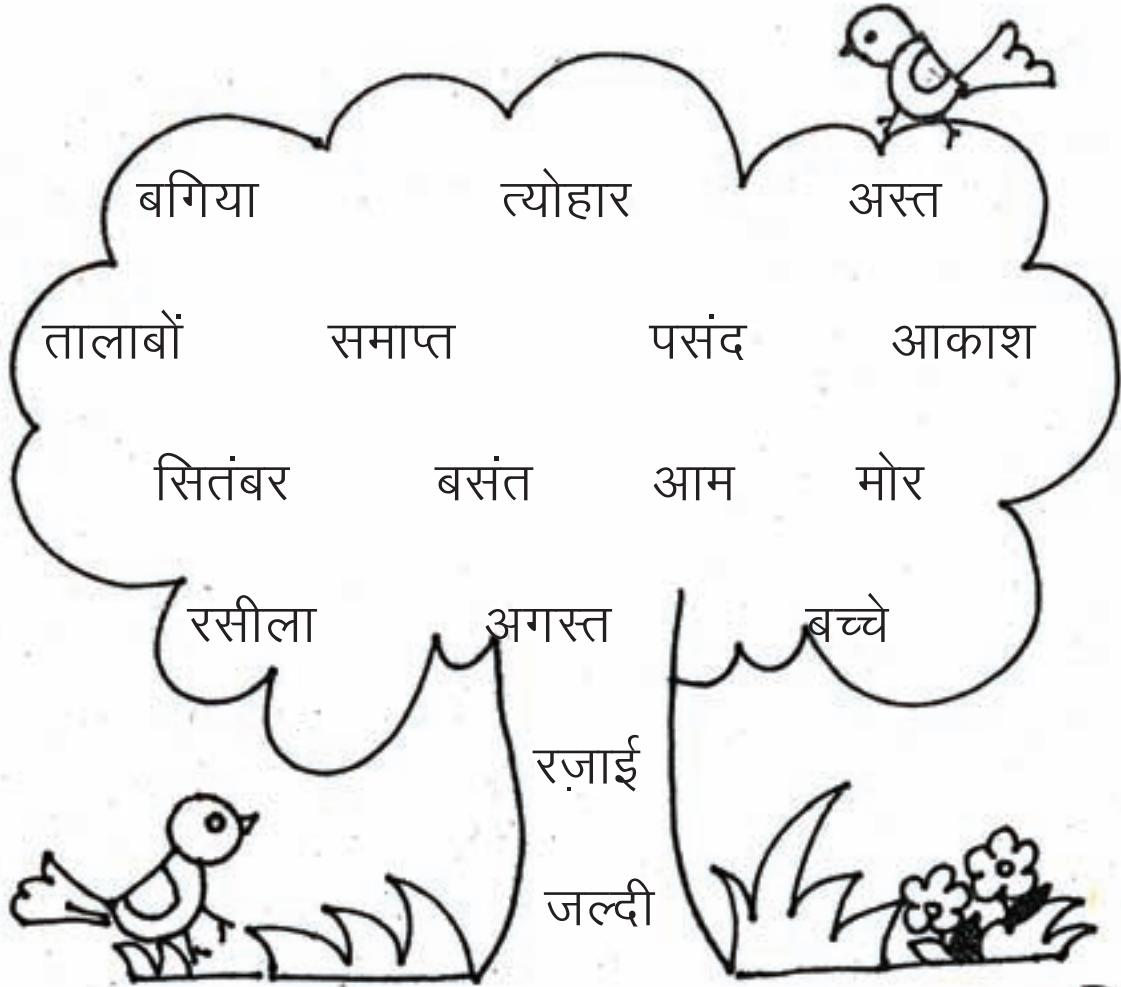 बगिया त्योहार अस्त
तालाबों समाप्त पसंद आकाश
सितंबर बसंत आम मोर
रसीला अगस्त बच्चे
रज़ाई
जल्दी